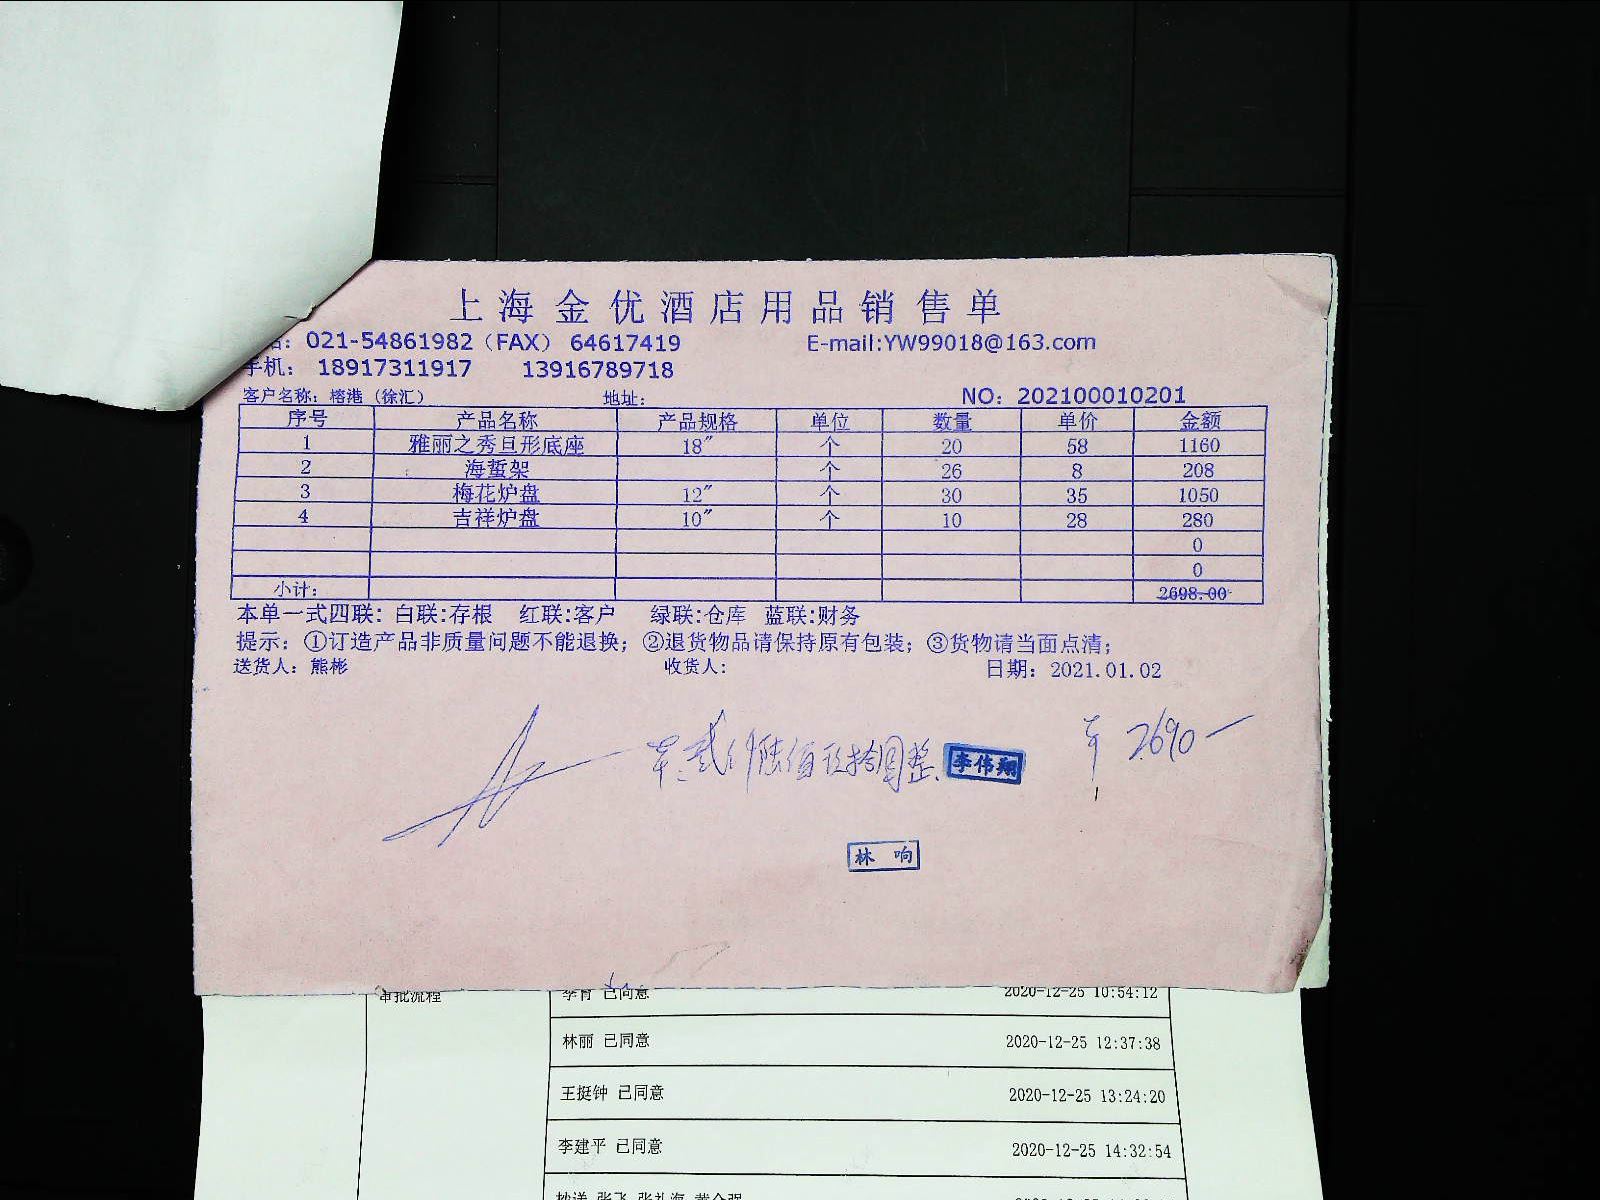 上海金优酒店用品销售单
021-54861982（FAX） 64617419 E-mail:YW99018@163.com
手机： 18917311917 13916789718
客户名称：榕港（徐汇） 地址： NO：202100010201
序号 产品名称 产品规格 单位 数量 单价 金额
1 雅丽之秀旦形底座 18″ 个 20 58 1160
2 海蜇架 个 26 8 208
3 梅花炉盘 12″ 个 30 35 1050
4 吉祥炉盘 10″ 个 10 28 280
0
0
小计： 2698.00
本单一式四联：白联:存根 红联:客户 绿联:仓库 蓝联:财务
提示：①订造产品非质量问题不能退换；②退货物品请保持原有包装；③货物请当面点清；
送货人：熊彬 收货人： 日期：2021.01.02
贰仟陆佰玖拾圆整 李伟翔 2690
林 响
审批流程 李育 已同意 2020-12-25 10:54:12
林丽 已同意 2020-12-25 12:37:38
王挺钟 已同意 2020-12-25 13:24:20
李建平 已同意 2020-12-25 14:32:54